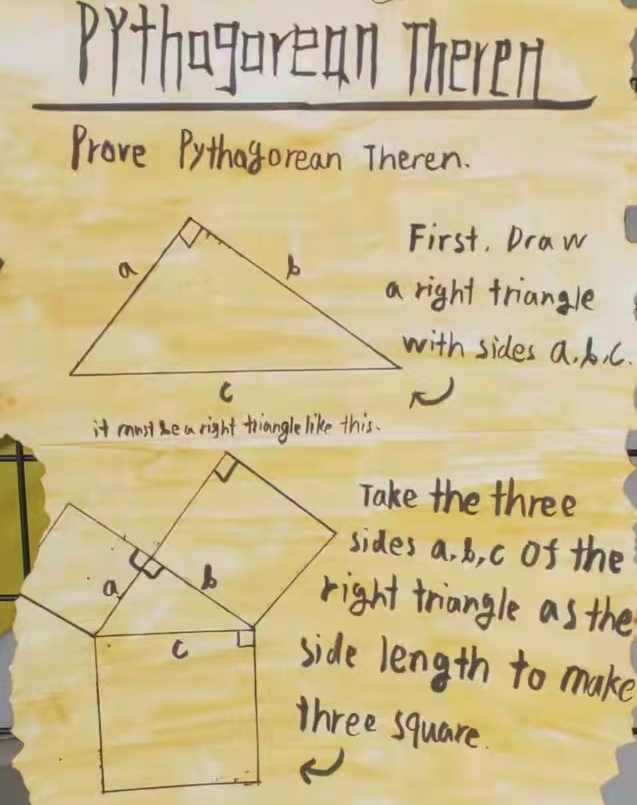 Pythagorean Theren
Prove Pythagorean Theren.
First. Draw
a right triangle
with sides a.b.c.
a
b
c
it must be a right triangle like this.
Take the three
sides a.b,c of the
right triangle as the
side length to make
three square.
a
b
c